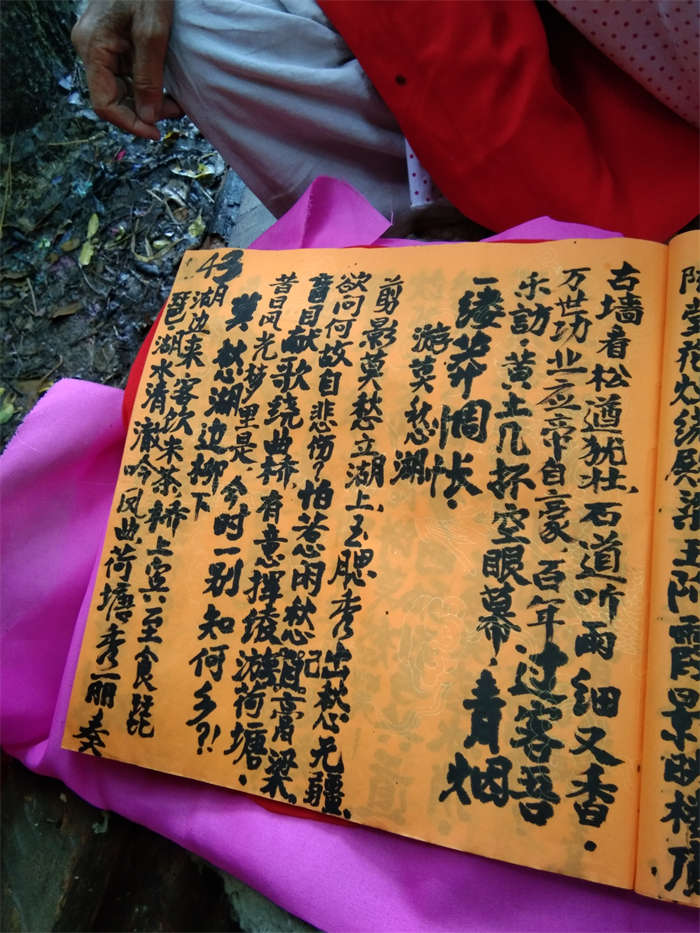 古墙看松道犹壮.石道听雨细又香.
万世功业应帝自豪.百年过客吾
访.黄土几杯空眼幕.青烟
一缕莽惆怅.
游莫愁湖
剪影莫愁立湖上.玉腮秀出愁无疆.
欲问何故自悲伤?怕惹闲愁膏粱.
献歌绕曲桥有意择游荷塘.
昔日风光梦里是.今时一别知何乡?!
43
莫愁湖边柳下
湖边来客饮米茶.桥上宾至食琵
琶.湖水清澈吟凤曲荷塘秀丽奏